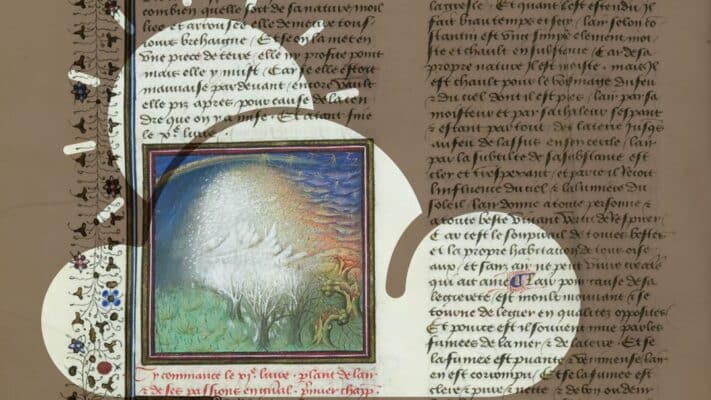 combien quelle soit de sa nature moil
liee et arrousee elle demeure tous
iours brehaigne / Et se on la met en
une piece de terre elle ny profite point
mais elle y nuyst / Car se elle estoit
mauuaise par deuant / encore vault
elle pis apres / pour cause de la cen
dre que on y a mise / Et a tant fine
le xe liure
Cy commance le xie liure plant de lair
& de ses passions premier chapp.
largesse / Et quant lest estendu il
fait beau temps et sec / lair selon
est ung simple element moi
ste et chault en substance / Car de sa
propre nature il est moiste / mais il
est chault pour le voisinage du feu
& du ciel dont il est pres / lair par sa
moisteur et par sa chaleur sespant
& estant par tout / de la terre iusqs
au feu de lassus en son cercle / lair
par la subtilite de sa substance est
cler et trespercant / et parce il recoit
linfluence du ciel & la lumiere du
soleil / lair donne a toute personne &
a toute beste viuant vertu de respirer /
Et ce est le souspirail de toutes bestes
et la propre habitacion de tous oise
aux / et sans air ne peut viure
qui ait ame Lair pour cause de sa
legierete est moult mouuant & se
tourne de legier en qualitez opposites /
Et pource est il souuent mue par les
fumees de la mer / & de la terre / Et se
la fumee est puante & venimeuse lair
en est corrompu / Et se la fumee est
clere & pure & nette / & de bon oudeur